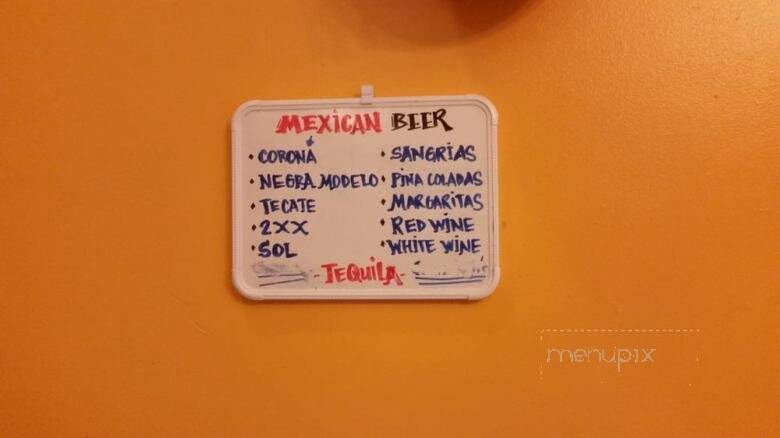 MEXICAN BEER
• CORONA
• NEGRA MODELO
• TECATE
• 2XX
• SOL
• SANGRIAS
• PINA COLADAS
• MARGARITAS
• RED WINE
• WHITE WINE
-TEQUILA-
menupix